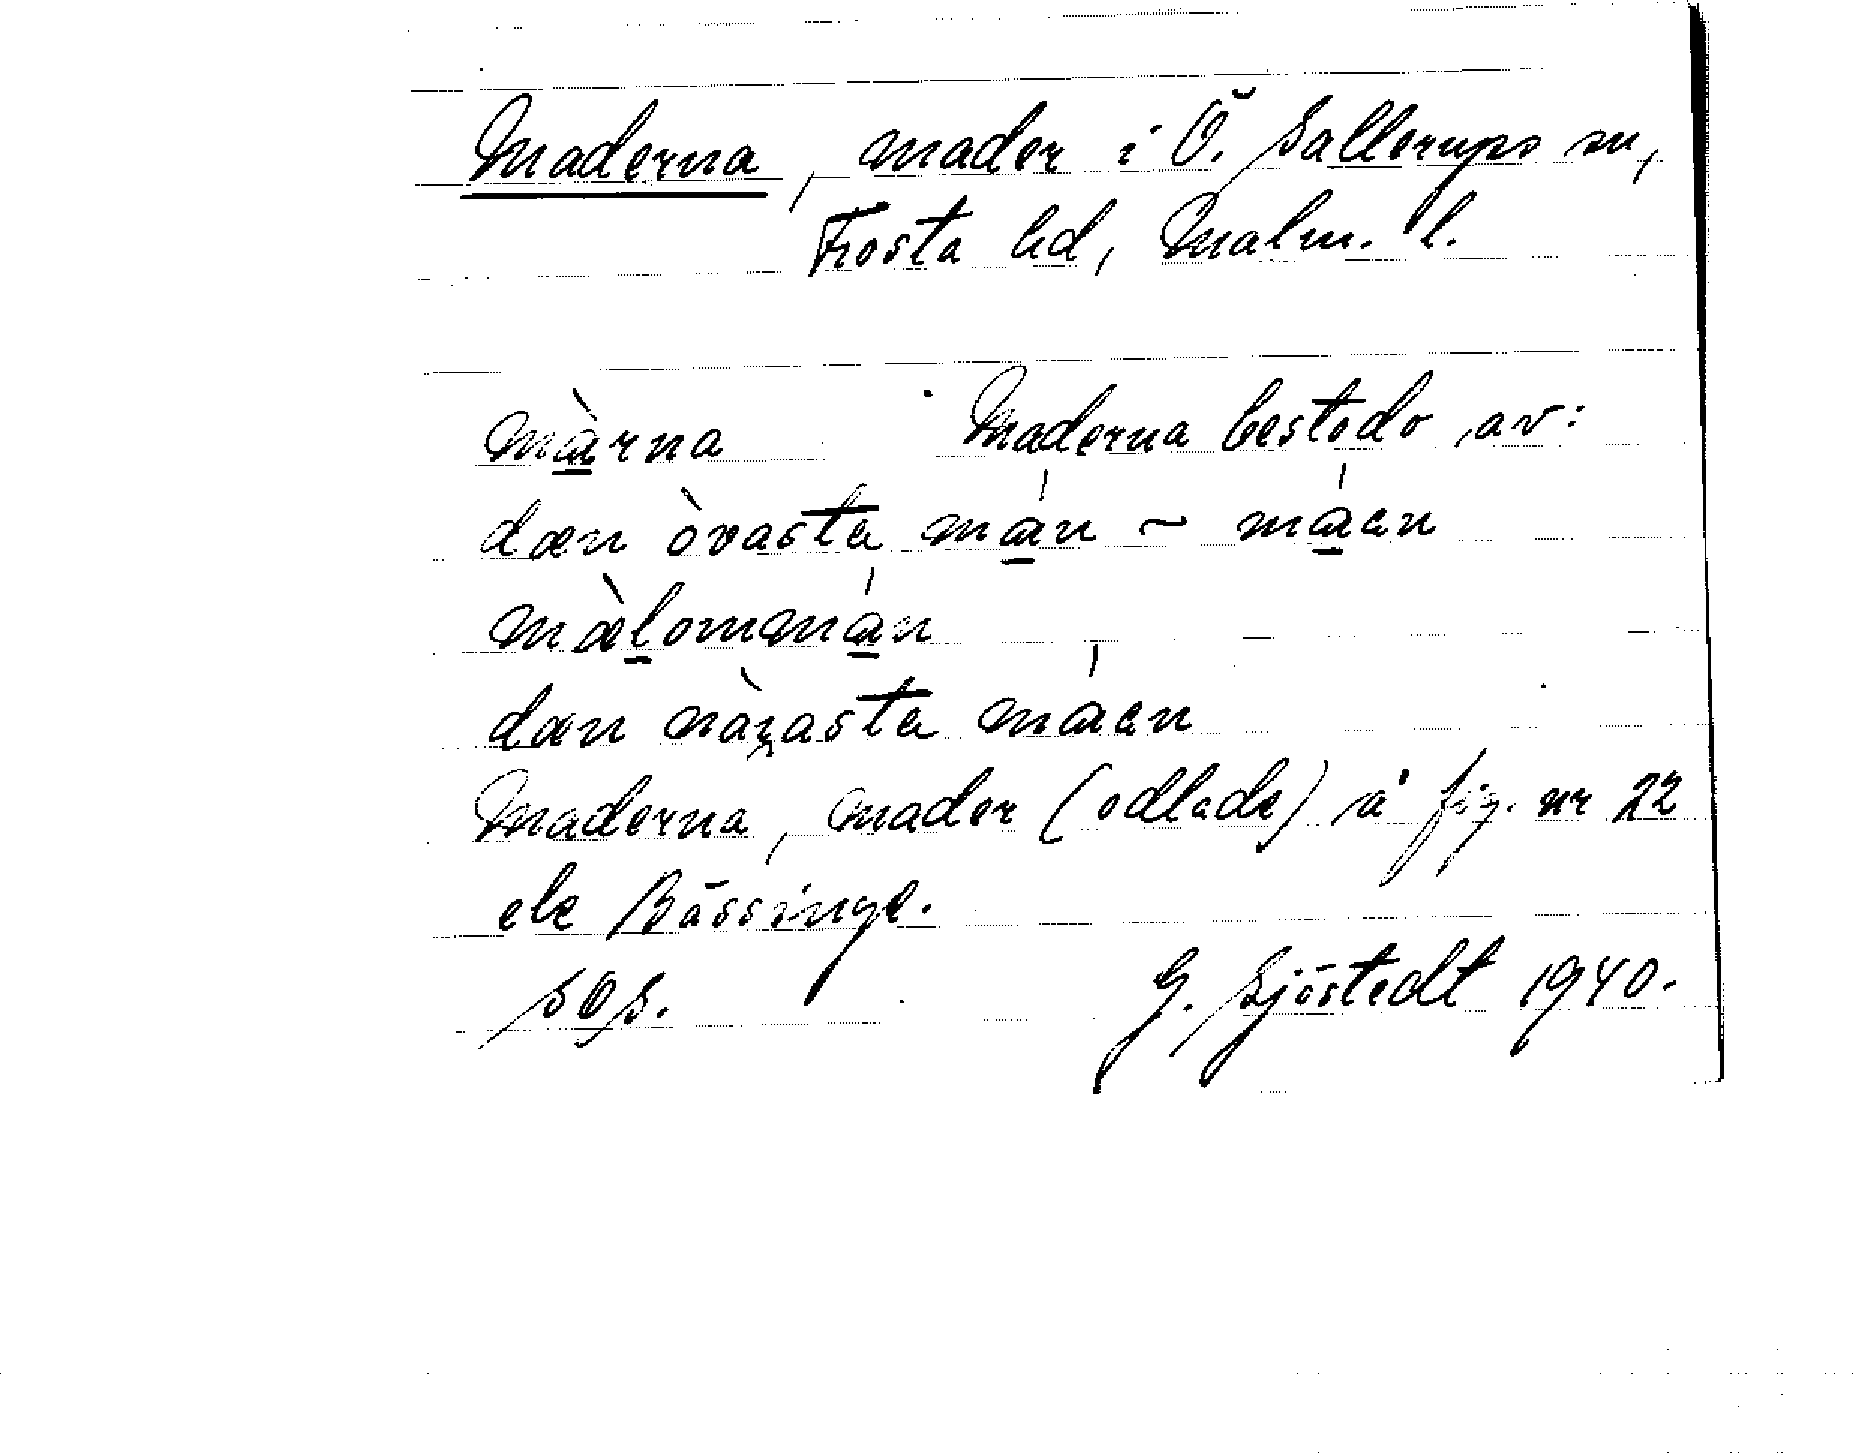 Maderna, mader i Ö. Sallerups sn,
Frosta hd, Malm. l.
màrna Maderna bestodo av:
dæn òvasta mán ~ máen
mæ̀lommán
dæn nàrasta máen
Maderna, mader (odlade) å fig. nr 22
ele Bässinge.
sos. G. Sjöstedt 1940.